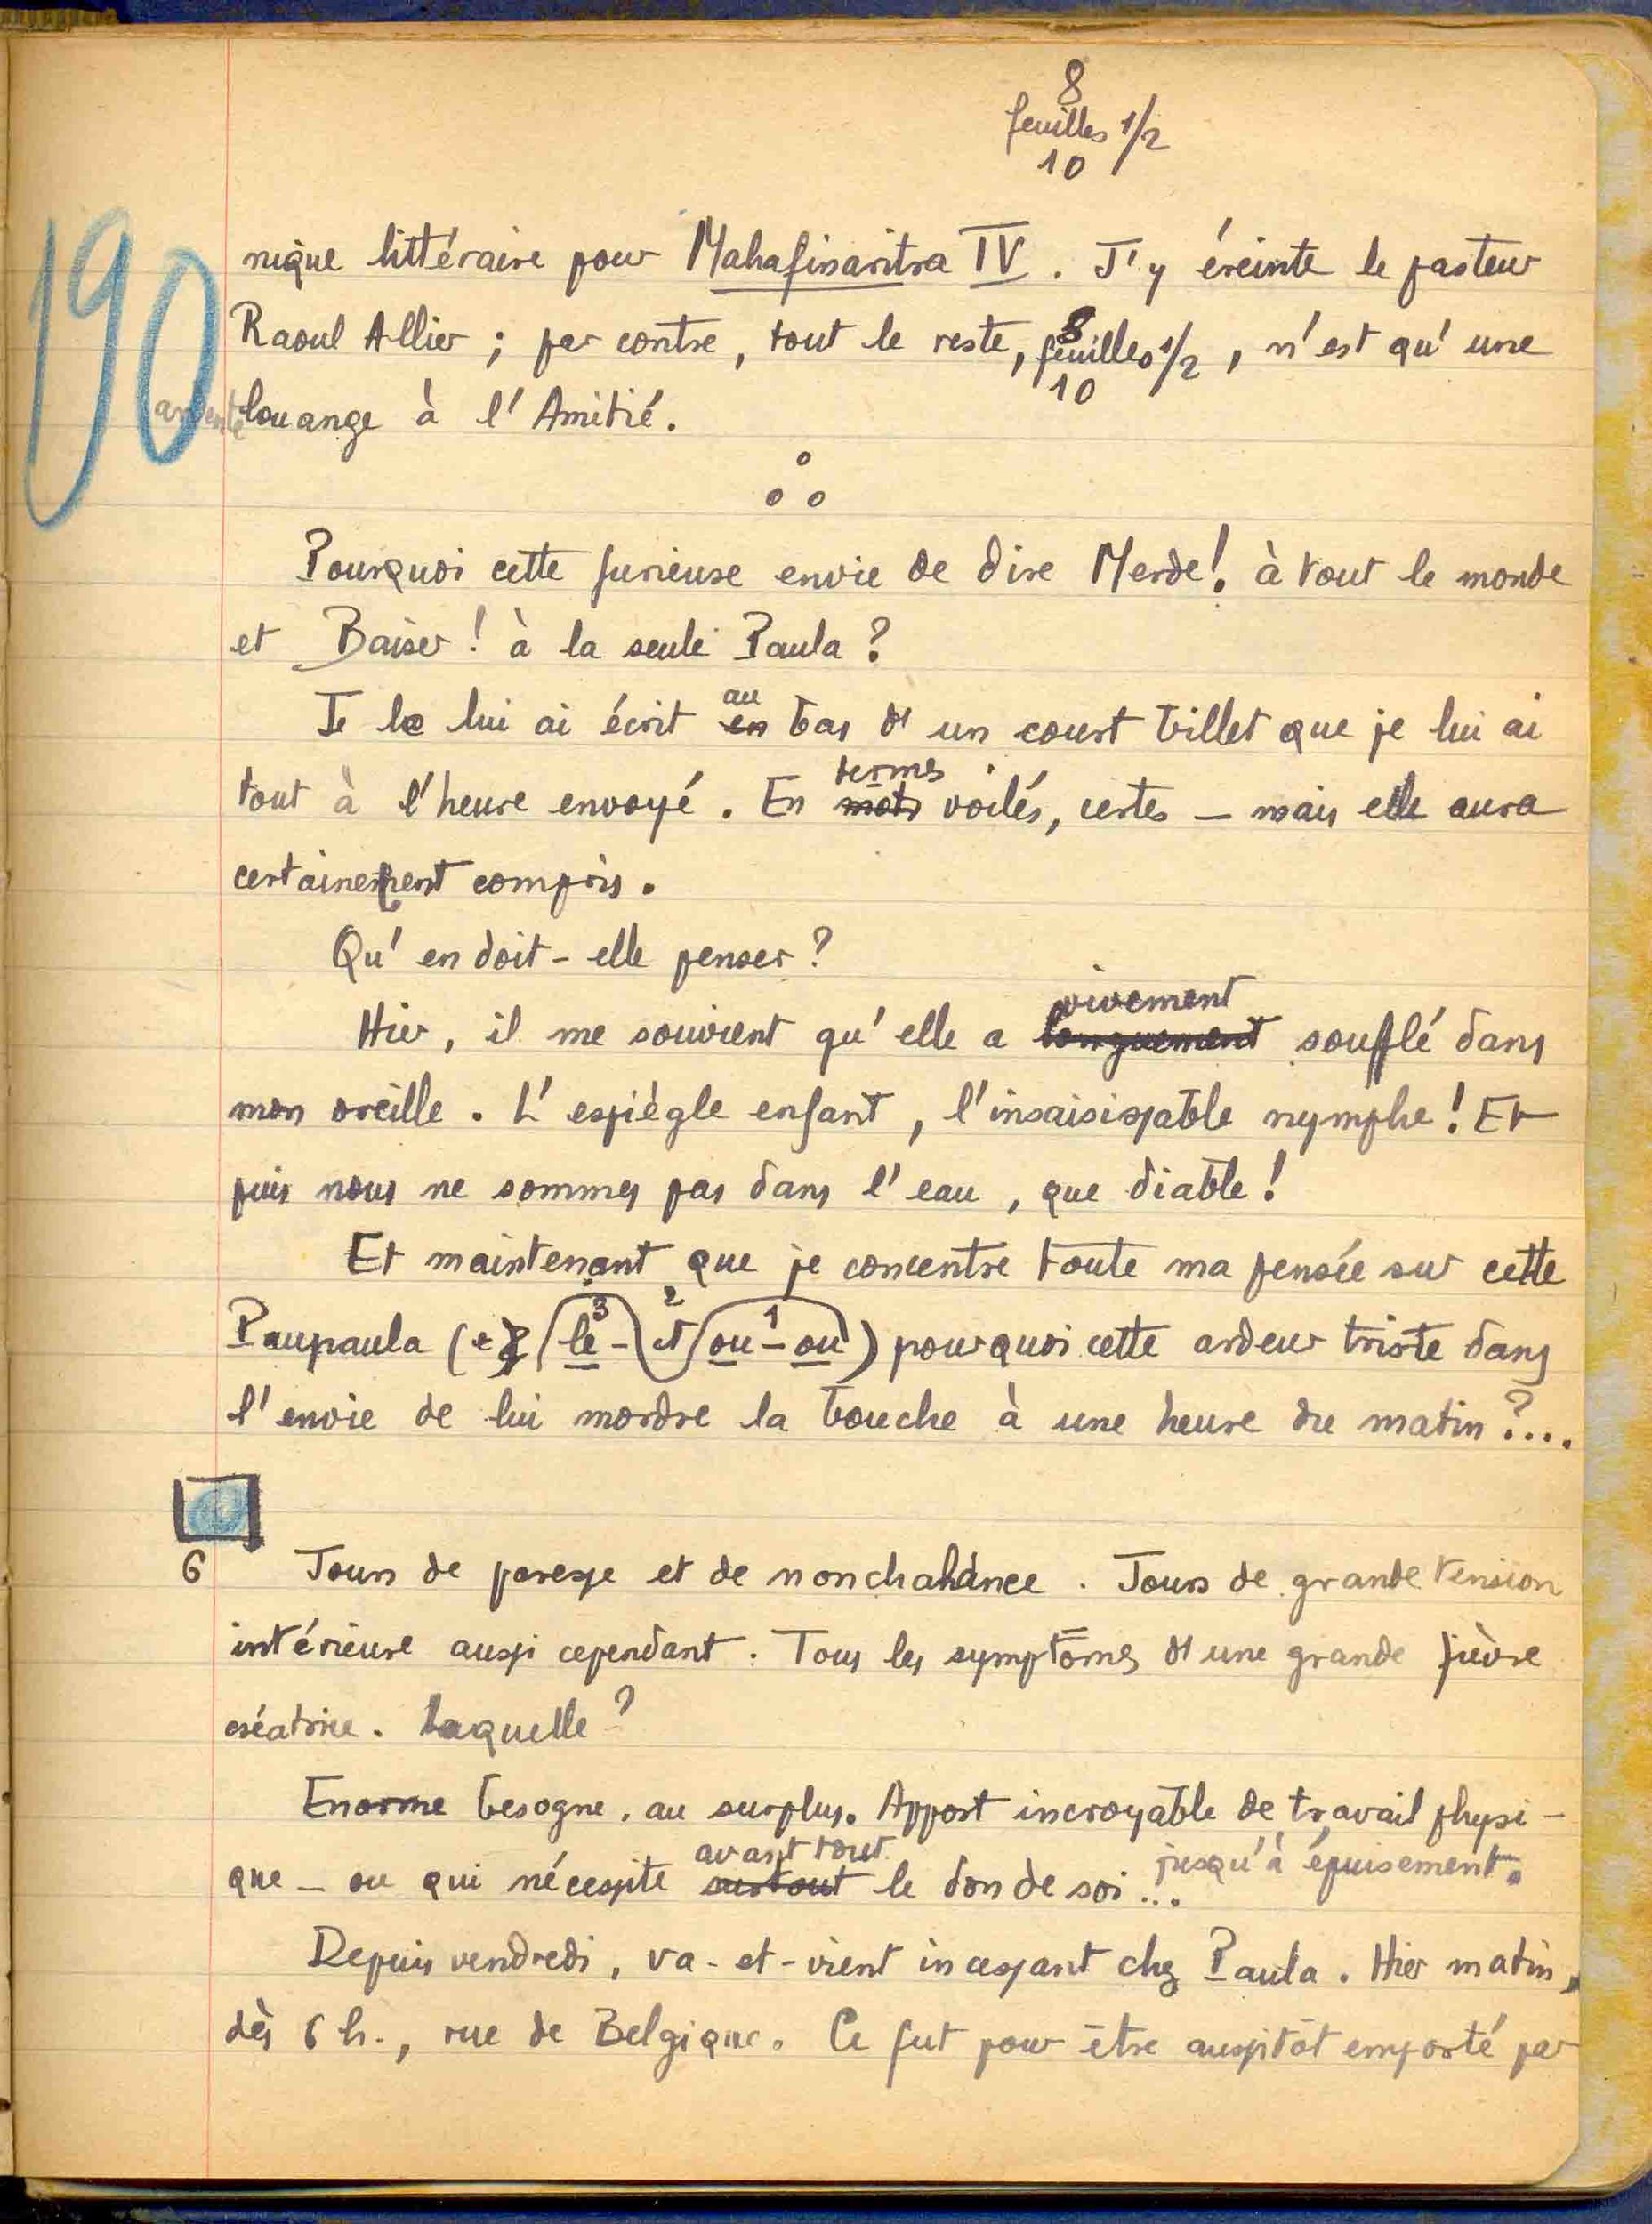 8
feuilles 1/2
10
190
nique littéraire pour Mahafinaritra IV. J'y éreinte le pasteur
Raoul Allier ; par contre, tout le reste, 8 feuilles 1/2 10, n'est qu'une
ardente louange à l'Amitié.
Pourquoi cette furieuse envie de dire Merde! à tout le monde
et Baiser! à la seule Paula?
Je le lui ai écrit en au bas d'un court billet que je lui ai
tout à l'heure envoyé. En mots termes voilés, certes — mais elle aura
certainement compris.
Qu'en doit-elle penser?
Hier, il me souvient qu'elle a longuement vivement soufflé dans
mon oreille. L'espiègle enfant, l'insaisissable nymphe! Et
puis nous ne sommes pas dans l'eau, que diable!
Et maintenant que je concentre toute ma pensée sur cette
Paupaula (le - et ou - ou) pourquoi cette ardeur triste dans
3 2 1
l'envie de lui mordre la bouche à une heure du matin?....
6 Jours de paresse et de nonchalance. Jours de grande tension
intérieure aussi cependant. Tous les symptômes d'une grande fièvre
créatrice. Laquelle?
Enorme besogne, au surplus. Apport incroyable de travail physi-
que — ou qui nécessite surtout avant tout le don de soi... jusqu'à épuisement.
Depuis vendredi, va-et-vient incessant chez Paula. Hier matin,
dès 6 h., rue de Belgique. Ce fut pour être aussitôt emporté par